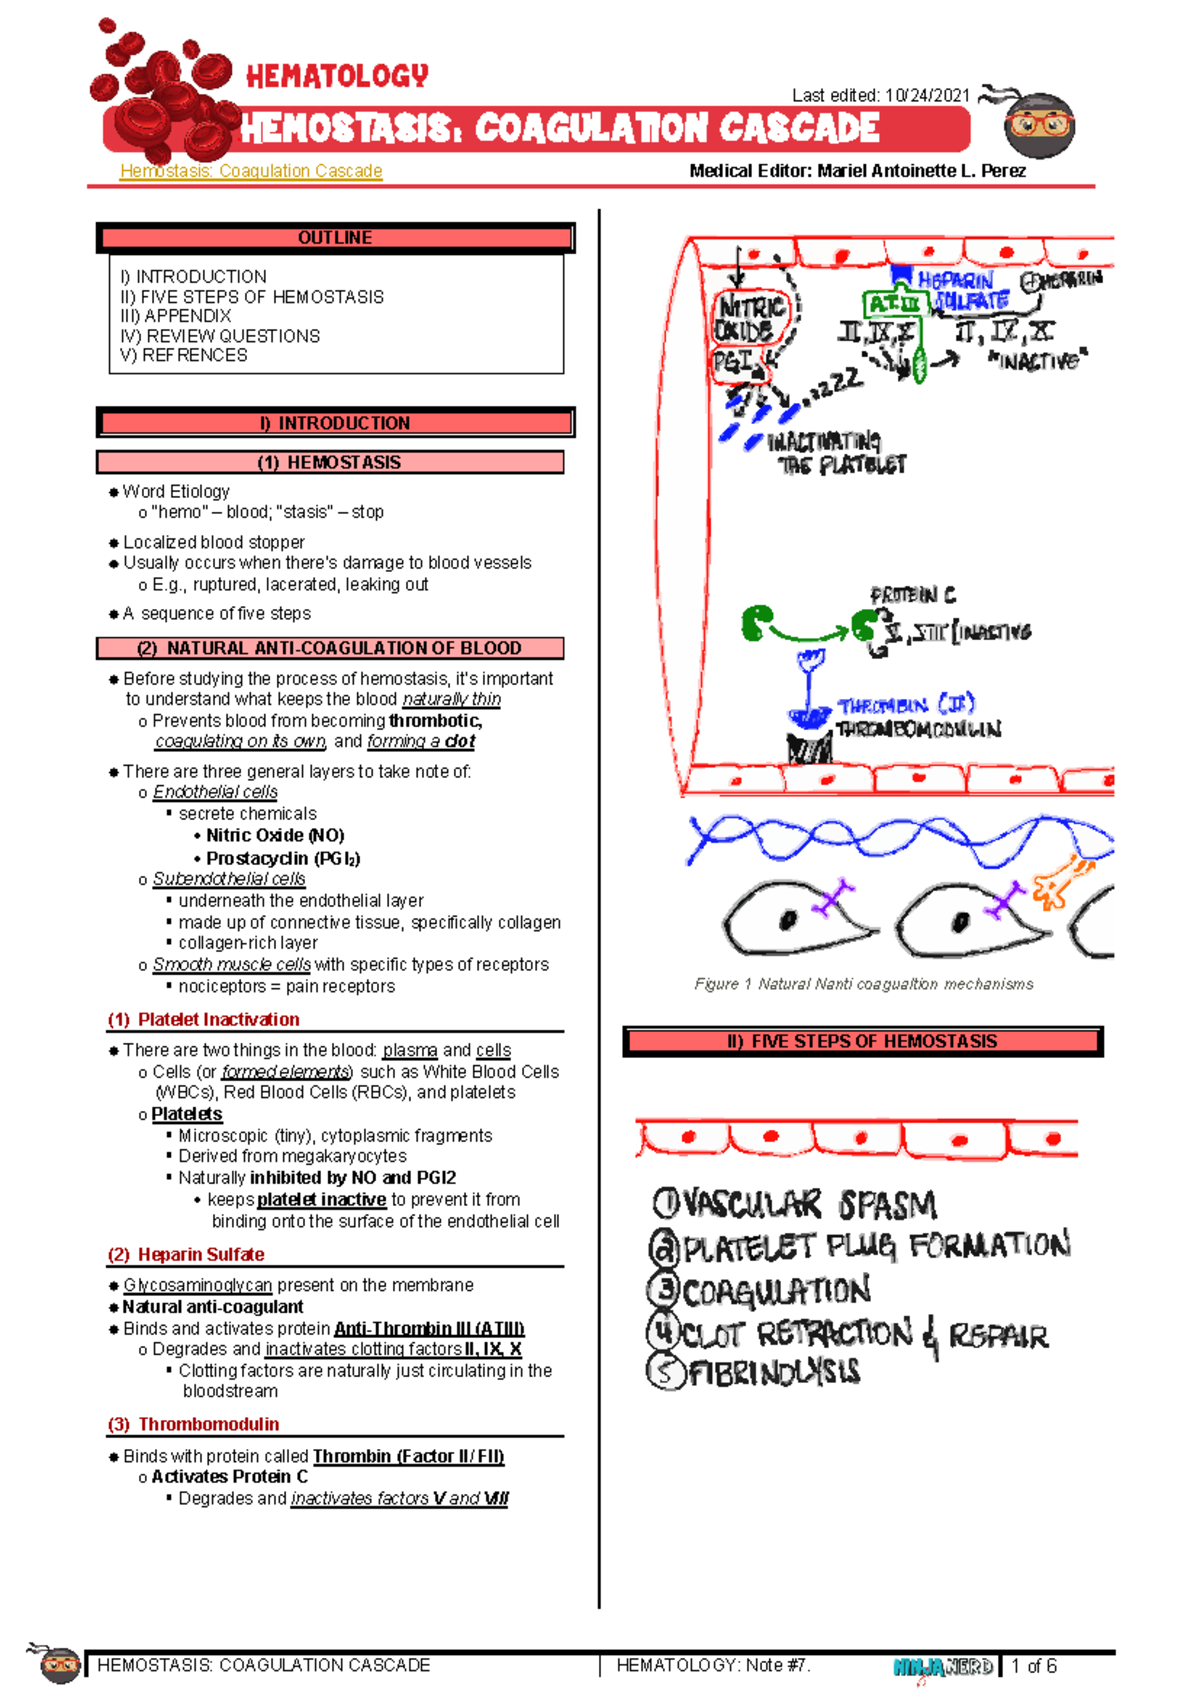 HEMATOLOGY
Last edited: 10/24/2021
HEMOSTASIS: COAGULATION CASCADE
Hemostasis: Coagulation Cascade
Medical Editor: Mariel Antoinette L. Perez
OUTLINE
I) INTRODUCTION
II) FIVE STEPS OF HEMOSTASIS
III) APPENDIX
IV) REVIEW QUESTIONS
V) REFRENCES
I) INTRODUCTION
(1) HEMOSTASIS
● Word Etiology
o "hemo" – blood; "stasis" – stop
● Localized blood stopper
● Usually occurs when there's damage to blood vessels
o E.g., ruptured, lacerated, leaking out
● A sequence of five steps
(2) NATURAL ANTI-COAGULATION OF BLOOD
● Before studying the process of hemostasis, it's important
to understand what keeps the blood naturally thin
o Prevents blood from becoming thrombotic,
coagulating on its own, and forming a clot
● There are three general layers to take note of:
o Endothelial cells
▪ secrete chemicals
• Nitric Oxide (NO)
• Prostacyclin (PGI₂)
o Subendothelial cells
▪ underneath the endothelial layer
▪ made up of connective tissue, specifically collagen
▪ collagen-rich layer
o Smooth muscle cells with specific types of receptors
▪ nociceptors = pain receptors
(1) Platelet Inactivation
● There are two things in the blood: plasma and cells
o Cells (or formed elements) such as White Blood Cells
(WBCs), Red Blood Cells (RBCs), and platelets
o Platelets
▪ Microscopic (tiny), cytoplasmic fragments
▪ Derived from megakaryocytes
▪ Naturally inhibited by NO and PGI2
• keeps platelet inactive to prevent it from
binding onto the surface of the endothelial cell
(2) Heparin Sulfate
● Glycosaminoglycan present on the membrane
● Natural anti-coagulant
● Binds and activates protein Anti-Thrombin III (ATIII)
o Degrades and inactivates clotting factors II, IX, X
▪ Clotting factors are naturally just circulating in the
bloodstream
(3) Thrombomodulin
● Binds with protein called Thrombin (Factor II/ FII)
o Activates Protein C
▪ Degrades and inactivates factors V and VIII
HEPARIN
SULFATE
+ HEPARIN
AT III
NITRIC
OXIDE
PGI₂
II, IX, X
II, IX, X
"INACTIVE"
ZZZZ
INACTIVATING
THE PLATELET
PROTEIN C
V, VIII [INACTIVE
THROMBIN (II)
THROMBOMODULIN
Figure 1 Natural Nanti coagualtion mechanisms
II) FIVE STEPS OF HEMOSTASIS
① VASCULAR SPASM
② PLATELET PLUG FORMATION
③ COAGULATION
④ CLOT RETRACTION & REPAIR
⑤ FIBRINOLYSIS
HEMOSTASIS: COAGULATION CASCADE
HEMATOLOGY: Note #7.
NINJA NERD
1 of 6